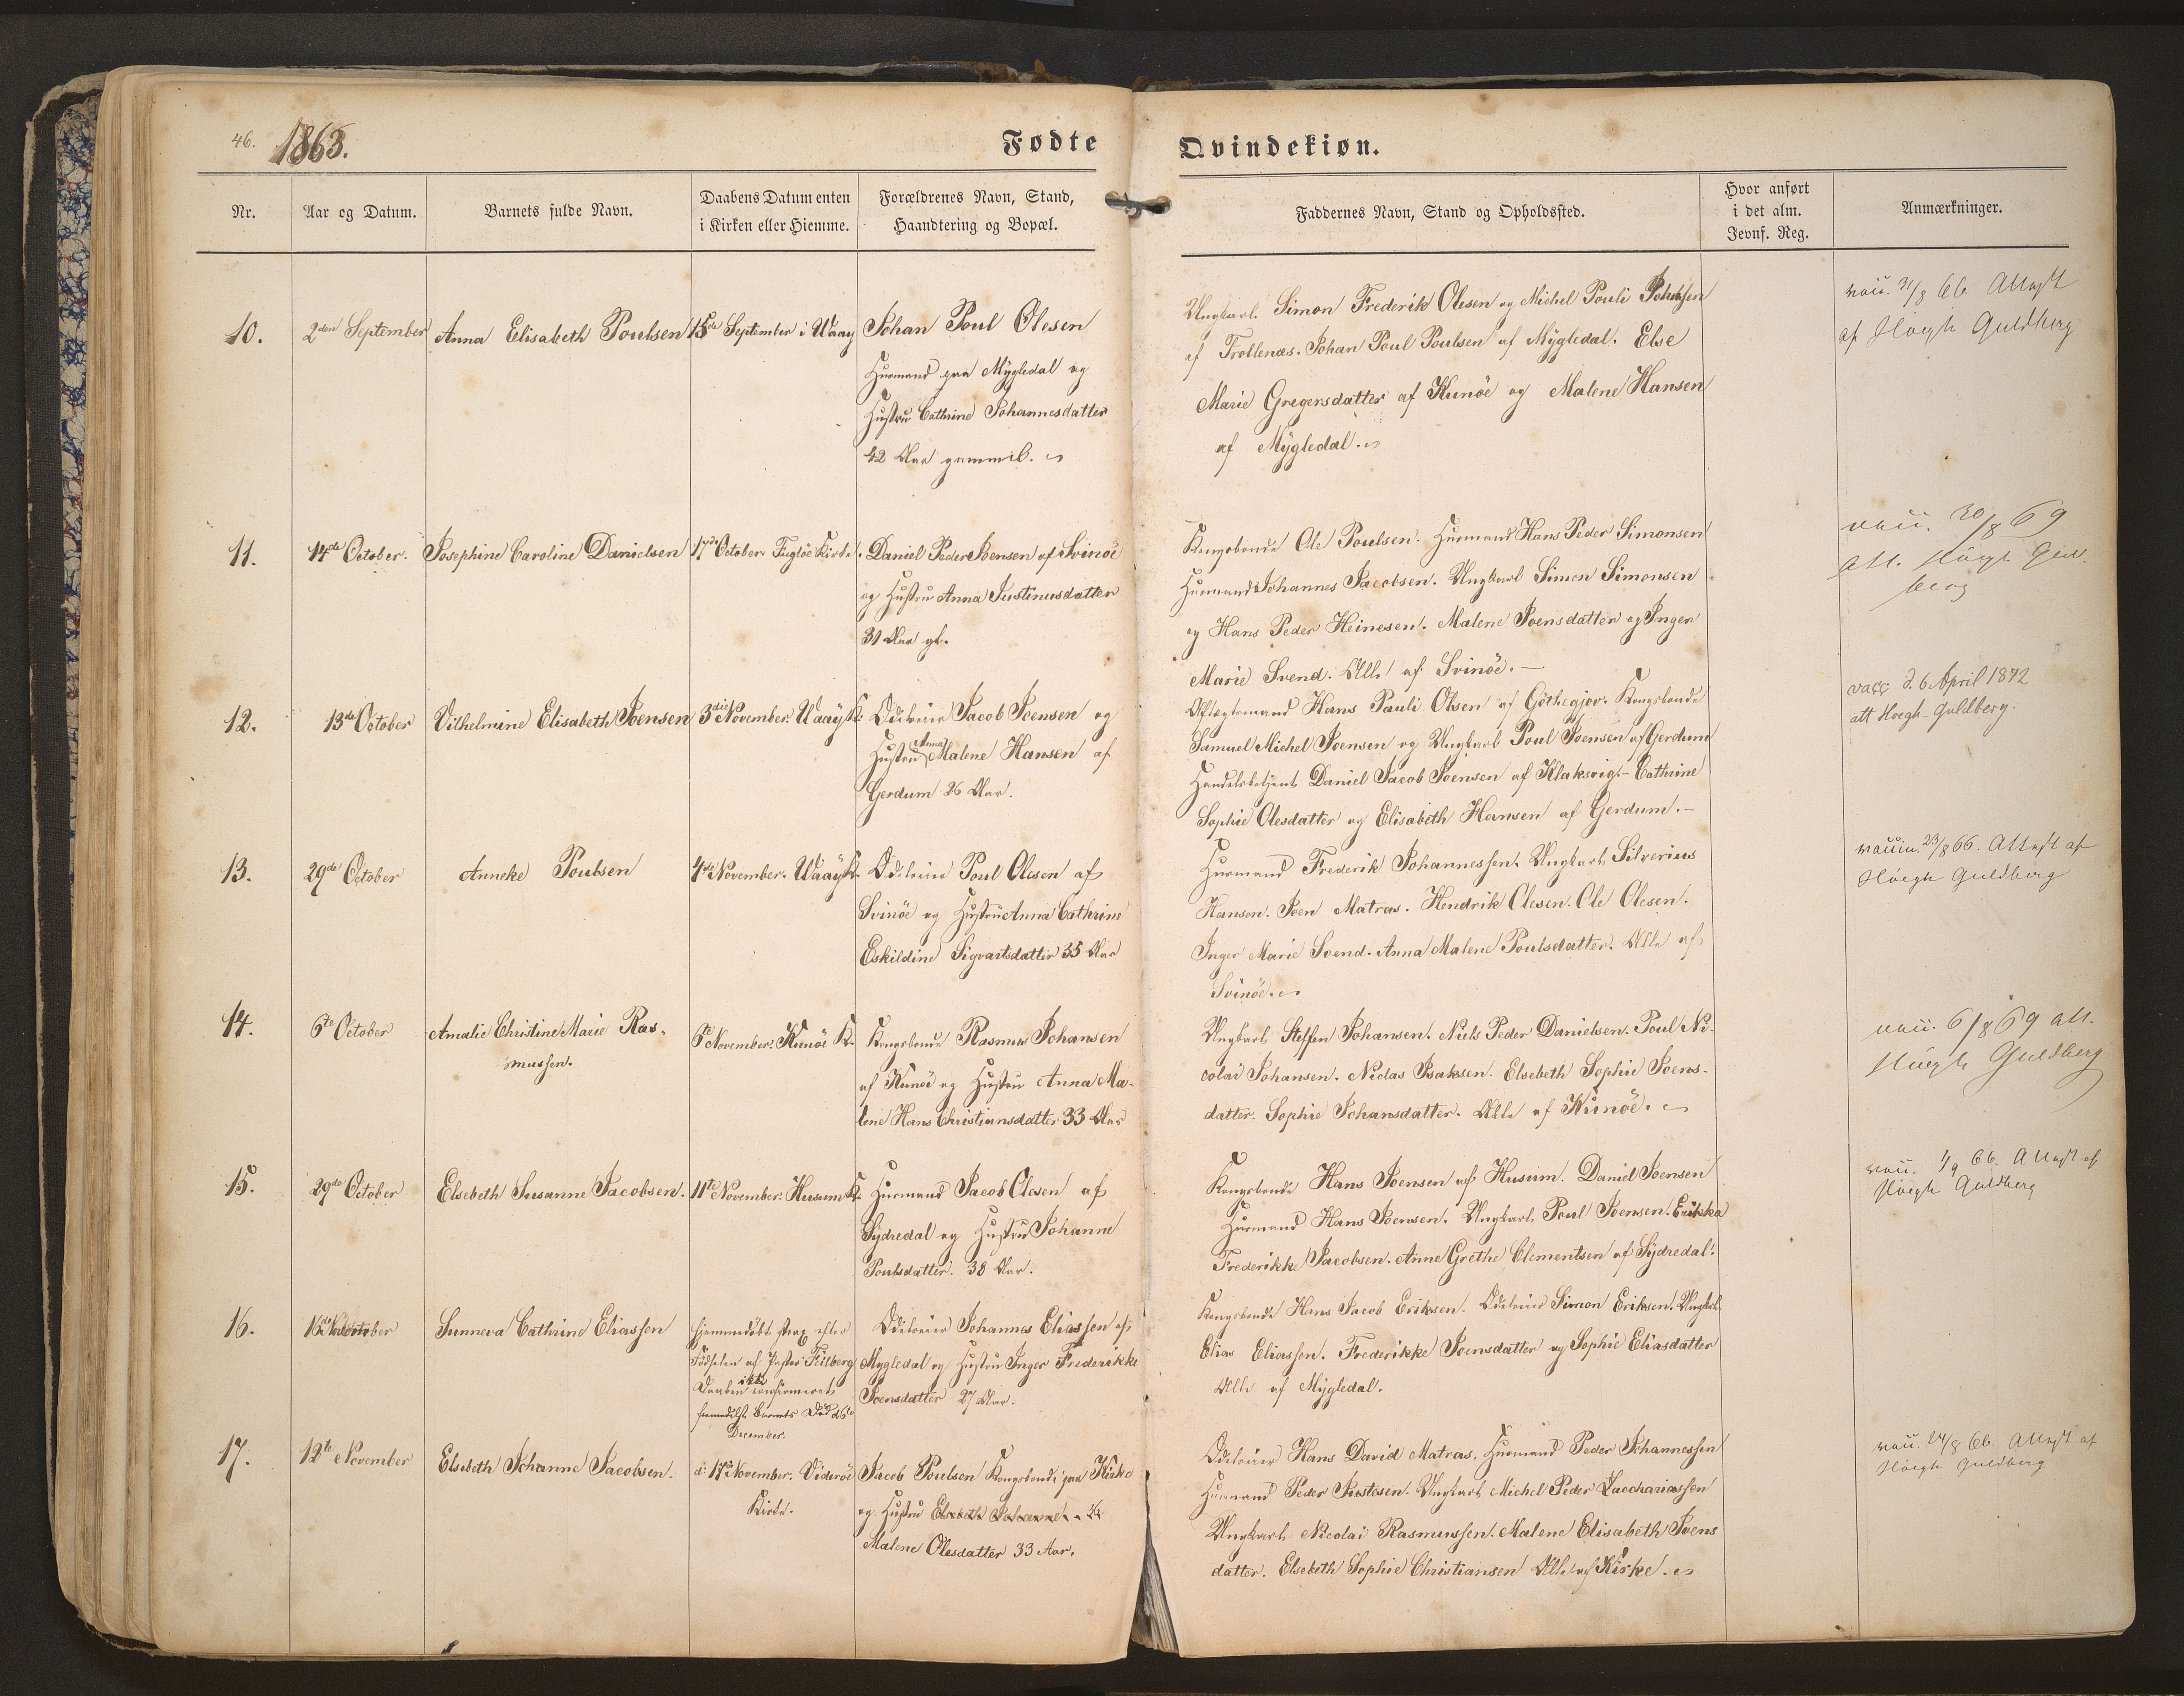 46. 1863.
Fødte
Qvindekiøn.
Nr.
Aar og Datum.
Barnets fulde Navn.
Daabens Datum enten
i Kirken eller Hiemme.
Forældrenes Navn, Stand,
Haandtering og Bopæl.
Faddernes Navn, Stand og Opholdssted.
Hvor anført
i det alm.
Jevnf. Reg.
Anmærkninger.
10.
2den September
Anna Elisabeth Poulsen
15de September i Waay
Johan Poul Olesen
Huusmand paa Mygledal og
Hustru Cathrine Johannesdatter
42 Aar gammel.
Ungkarl. Simon Frederik Olesen og Michel Pouli
af Trollenæs. Johan Poul Poulsen af Mygledal. Else
Marie Gregersdatter af Kunöe og Malene Hansen
af Mygledal.
vacc. 31/8 66. Attest
af Höegh Guldberg
11.
14de October.
Josephine Caroline Danielsen
17de October. Fuglöe Kirke.
Daniel Peder Joensen af Svinöe
og Hustru Anna Justinusdatter
31 Aar gl.
Kongsbonde Ole Poulsen. Huusmand Hans Peder Simonsen
Huusmand Johannes Jacobsen. Ungkarl Simon Simonsen
og Hans Peder Heinesen. Malene Joensdatter og Inger
Marie Svend. Alle af Svinöe.
vacc. 30/8 69
att. Höegh Guld
berg
12.
13de October
Vilhelmine Elisabeth Joensen
3die November. Waay K.
Odelseier Jacob Joensen og
Hustru Anna Malene Hansen af
Gerdum 26 Aar.
Hans Pauli Olsen af Göthegjov. Kongsbonde
Samuel Michel Joensen og Ungkarl Poul Joensen af Gerdum
Handelsbetjent Daniel Jacob Joensen af Klaksvig. Cathrine
Sophie Olesdatter og Elisabeth Hansen af Gerdum.
vacc d. 6 April 1872
att Hoegh-Guldberg.
13.
29de October
Anneke Poulsen
4de November. Waay K.
Odelseier Poul Olesen af
Svinöe og Hustru Anna Cathrine
Eskildine Sigvartsdatter 35 Aar
Huusmand Frederik Johannessen. Ungkarl Silverius
Hansen. Joen Matras. Hendrik Olesen. Ole Olesen.
Inger Marie Svend. Anna Malene Poulsdatter. Alle af
Svinöe.
vaccin. 23/8 66. Attest af
Höegh Guldberg
14.
6te October
Amalie Christine Marie Ras-
mussen.
6te November. Kunöe K.
Kongsbonde Rasmus Johansen
af Kunöe og Hustru Anna Ma-
lene Hans Christiansdatter 33 Aar
Ungkarl Steffen Johansen. Niels Peder Danielsen. Poul Ni-
colai Johansen. Niclas Isaksen. Elsebeth Sophie Joens-
datter. Sophie Johansdatter. Alle af Kunöe.
vacc. 6/8 69 att.
Höegh Guldberg
15.
29de October
Elsebeth Susanne Jacobsen.
11te November. Husum K.
Huusmand Jacob Olesen af
Sydredal og Hustru Johanne
Poulsdatter. 38 Aar.
Kongsbonde Hans Joensen af Husum. Daniel Joensen
Huusmand Hans Joensen. Ungkarl Poul Joensen.
Frederikke Jacobsen. Anne Grethe Clementsen af Sydredal.
vacc. 1/9 66. Attest af
Höegh Guldberg
16.
Sunneva Cathrine Eliassen
hjemmedöbt strax efter
Födselen af Pastor Fribery
Daaben ikke confirmeret
formedelst Barnets Död d 6te
December.
Odelseier Johannes Eliassen af
Mygledal og Hustru Inger Frederikke
Joensdatter 27 Aar.
Kongsbonde Hans Jacob Eriksen. Odelseier Simon Eriksen. Ungkl.
Elias Eliassen. Frederikke Joensdatter og Sophie Eliasdatter
Alle af Mygledal.
17.
12te November
Elsebeth Johanne Jacobsen.
d. 17de November. Videröe
Kirke.
Jacob Poulsen Kongsbonde paa Kirke
og Hustru Elsebeth Johanne
Malene Olesdatter 33 Aar.
Odelseier Hans David Matras. Huusmand Peder Johannessen
Huusmand Peder Justesen. Ungkarl Michel Peder Zacchariassen
Ungkarl Nicolai Rasmussen. Malene Elisabeth Joens
datter. Elsebeth Sophie Christiansen Alle af Kirke.
vacc. 24/8 66. Attest af
Höegh Guldberg